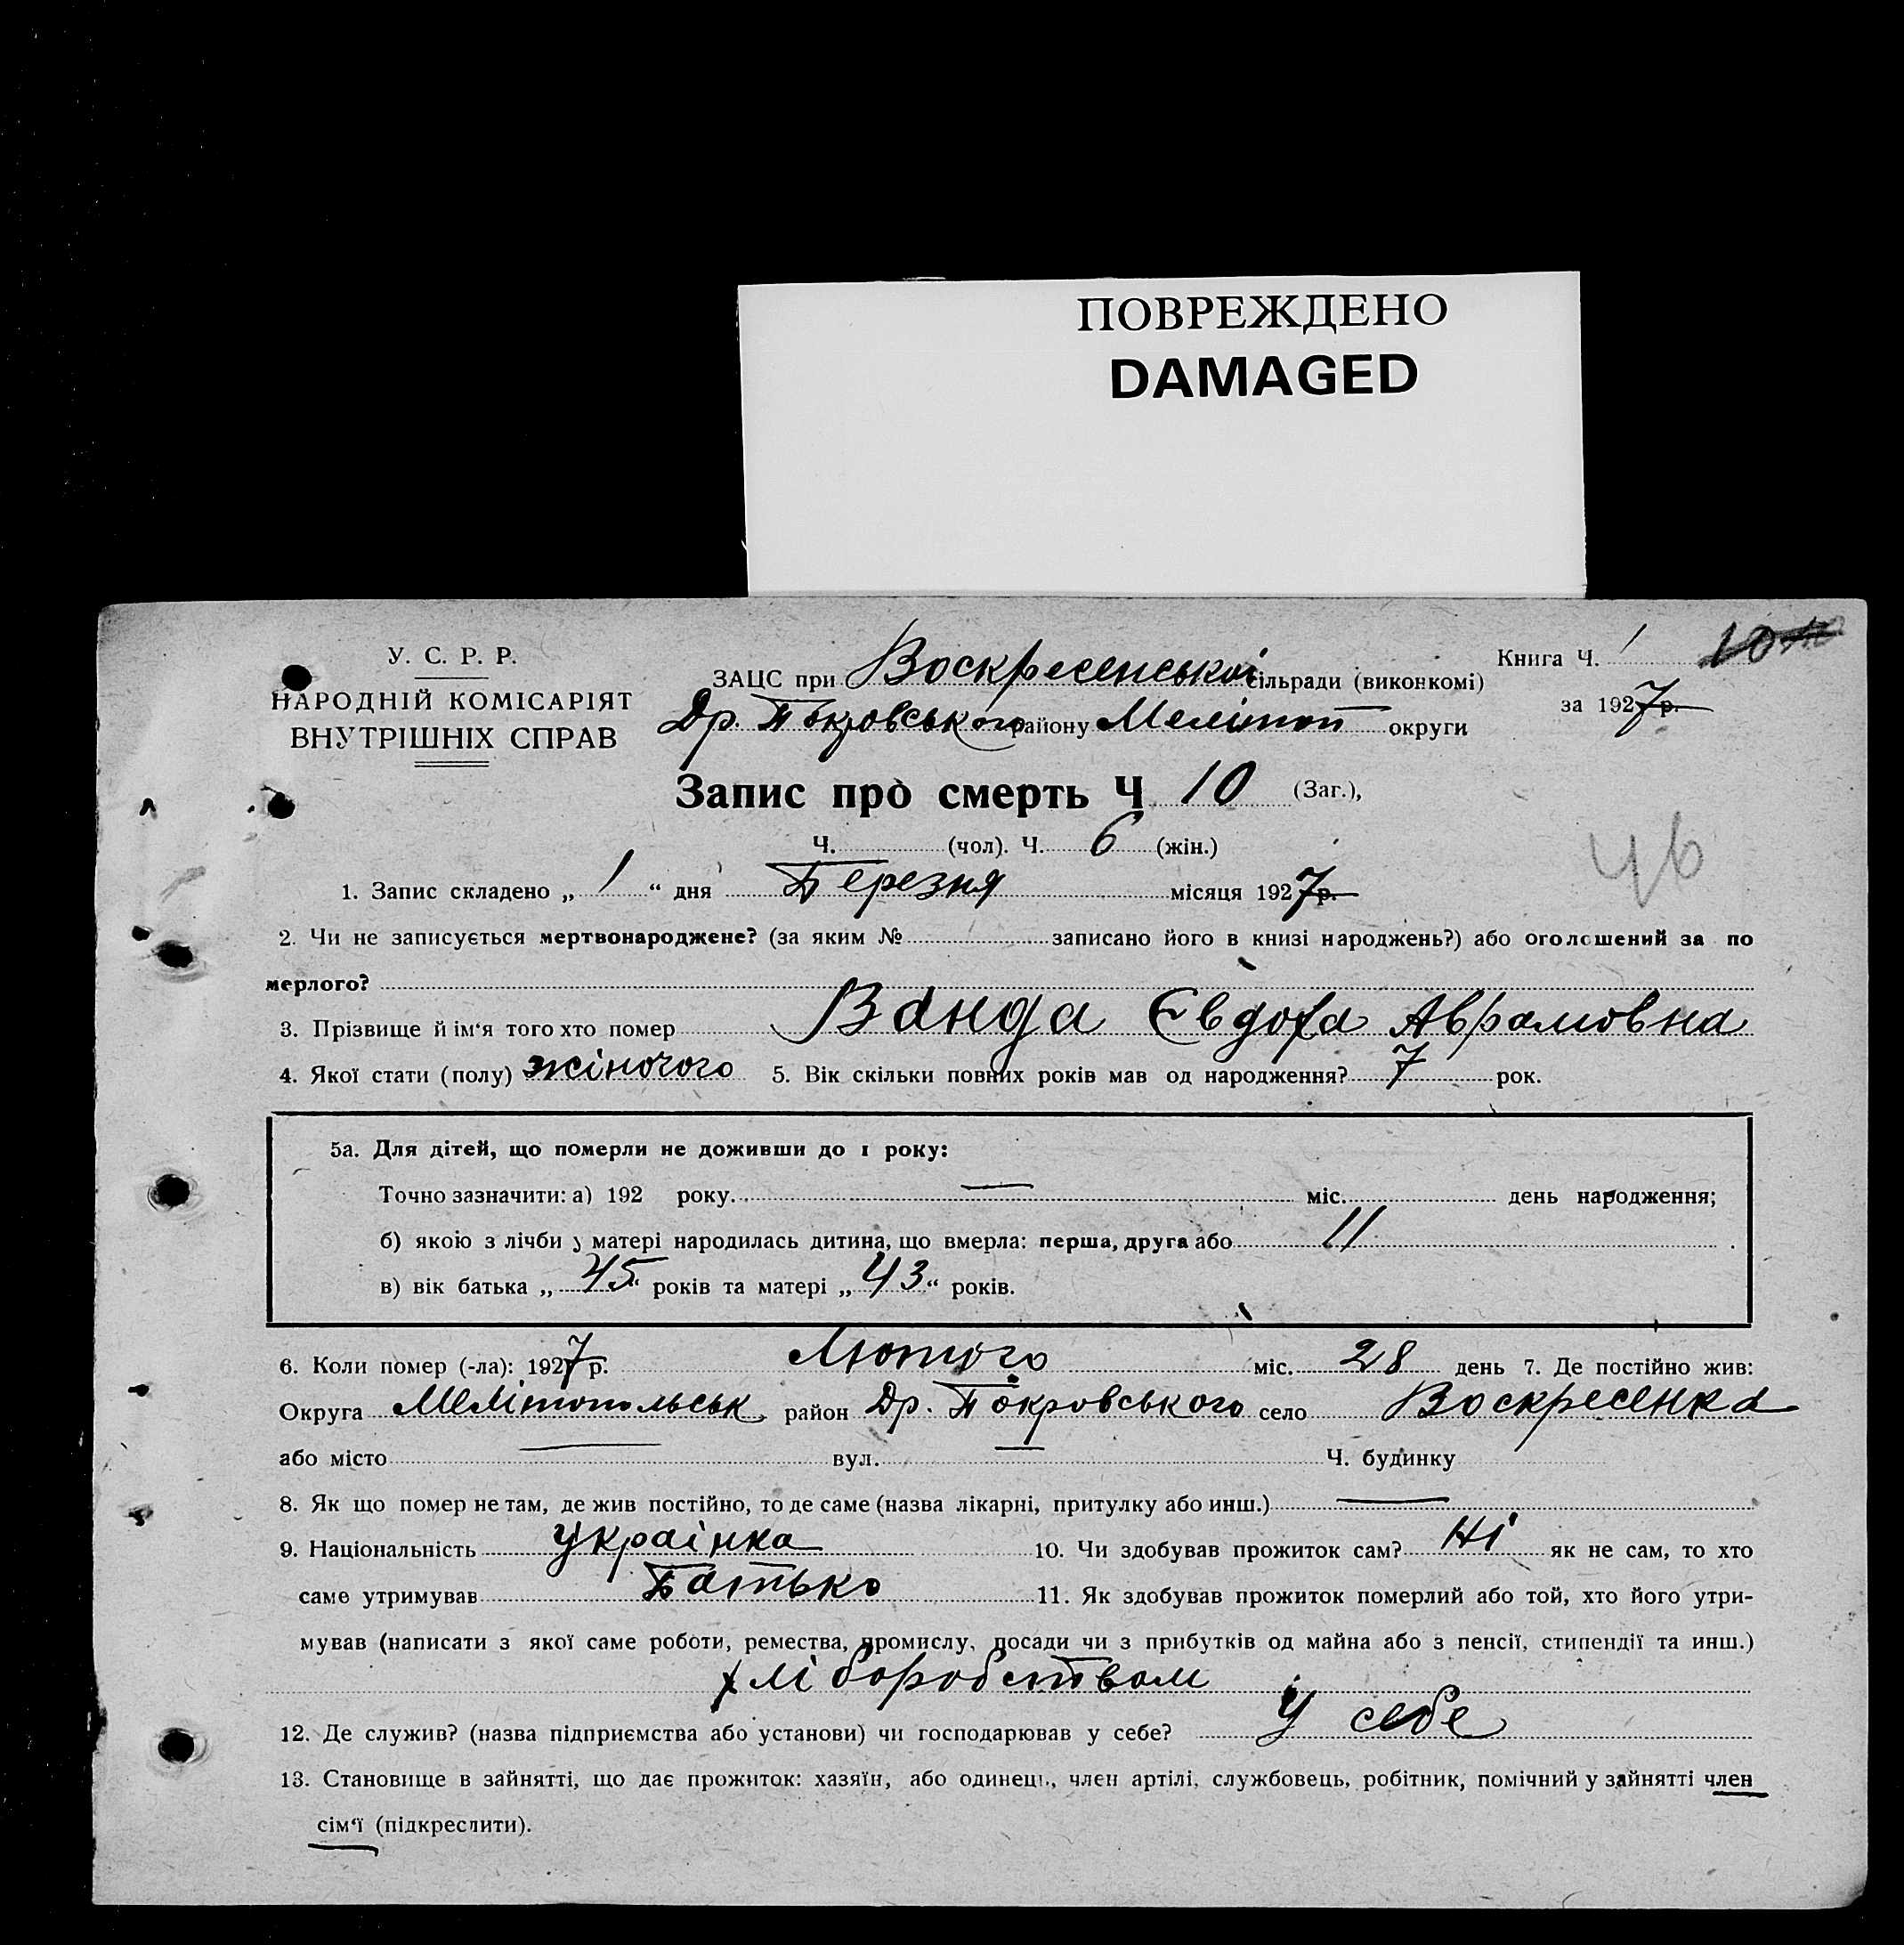 ПОВРЕЖДЕНО
DAMAGED
У. С. Р. Р.
НАРОДНІЙ КОМІСАРІЯТ
ВНУТРІШНІХ СПРАВ
ЗАЦС при Воскресенської сільради (виконкомі)
Др. Покровського району Мелітоп округи
Книга Ч. 1
за 1927 р.
Запис про смерть Ч 10 (Заг.),
Ч. (чол). Ч. 6 (жін.)
46
1. Запис складено „ 1 “ дня Березня місяця 1927 р.
2. Чи не записується мертвонароджене? (за яким № записано його в книзі народжень?) або оголошений за по
мерлого?
3. Прізвище й ім‘я того хто помер Ванда Євдоха Аврамовна
4. Якої стати (полу) жіночого 5. Вік скільки повних років мав од народження? 7 рок.
5а. Для дітей, що померли не доживши до 1 року:
Точно зазначити: а) 192 року. — міс. день народження;
б) якою з лічби у матері народилась дитина, що вмерла: перша, друга або 11 .
в) вік батька „ 45 “ років та матері „ 43 “ років.
6. Коли помер (-ла): 1927 р. Лютого міс. 28 день 7. Де постійно жив:
Округа Мелітопольськ район Др. Покровського село Воскресенка
або місто — вул. — Ч. будинку
8. Як що помер не там, де жив постійно, то де саме (назва лікарні, притулку або инш.) —
9. Національність українка 10. Чи здобував прожиток сам? Ні як не сам, то хто
саме утримував Батько 11. Як здобував прожиток померлий або той, хто його утри-
мував (написати з якої саме роботи, ремества, промислу, посади чи з прибутків од майна або з пенсії, стипендії та инш.)
хліборобством
12. Де служив? (назва підприємства або установи) чи господарював у себе? У себе
13. Становище в зайнятті, що дає прожиток: хазяїн, або одинець, член артілі, службовець, робітник, помічний у зайнятті член
сім‘ї (підкреслити).